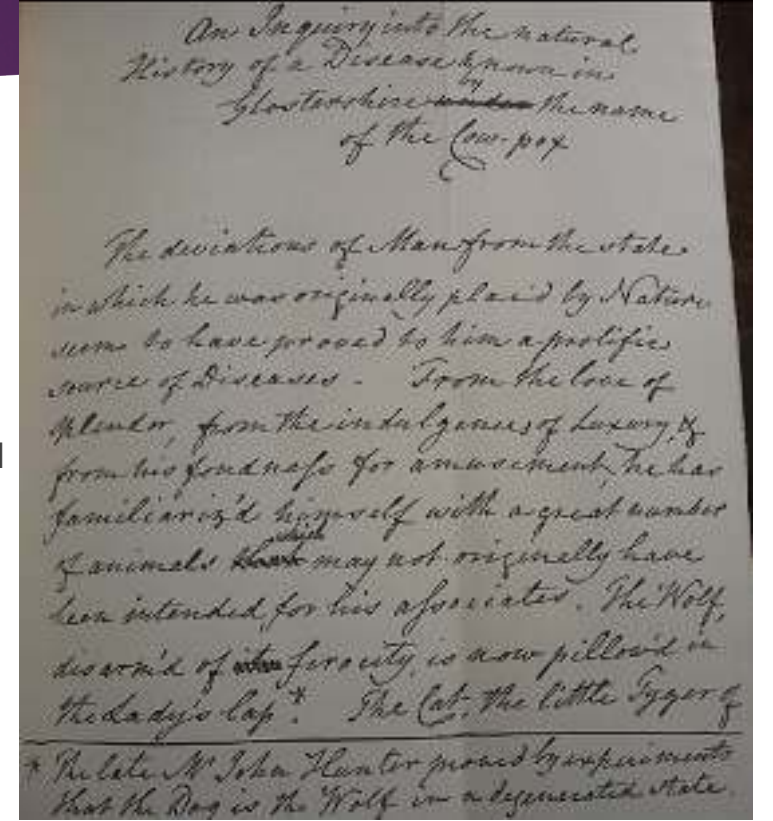 An Inquiry into the natural
History of a Disease known in
by
Glostershire under the name
of the Cow-pox
The deviations of Man from the state
in which he was originally plac'd by Nature
seem to have proved to him a prolific
source of Diseases. From the love of
splendor, from the indulgences of Luxury, &
from his fondness for amusement, he has
familiariz'd himself with a great number
which
of animals that may not originally have
been intended for his associates. The Wolf,
disarm'd of ferocity, is now pillow'd in
the Lady's lap*. The Cat, the little Tyger of
* The late Mr John Hunter proved by experiments
that the Dog is the Wolf in a degenerated state.